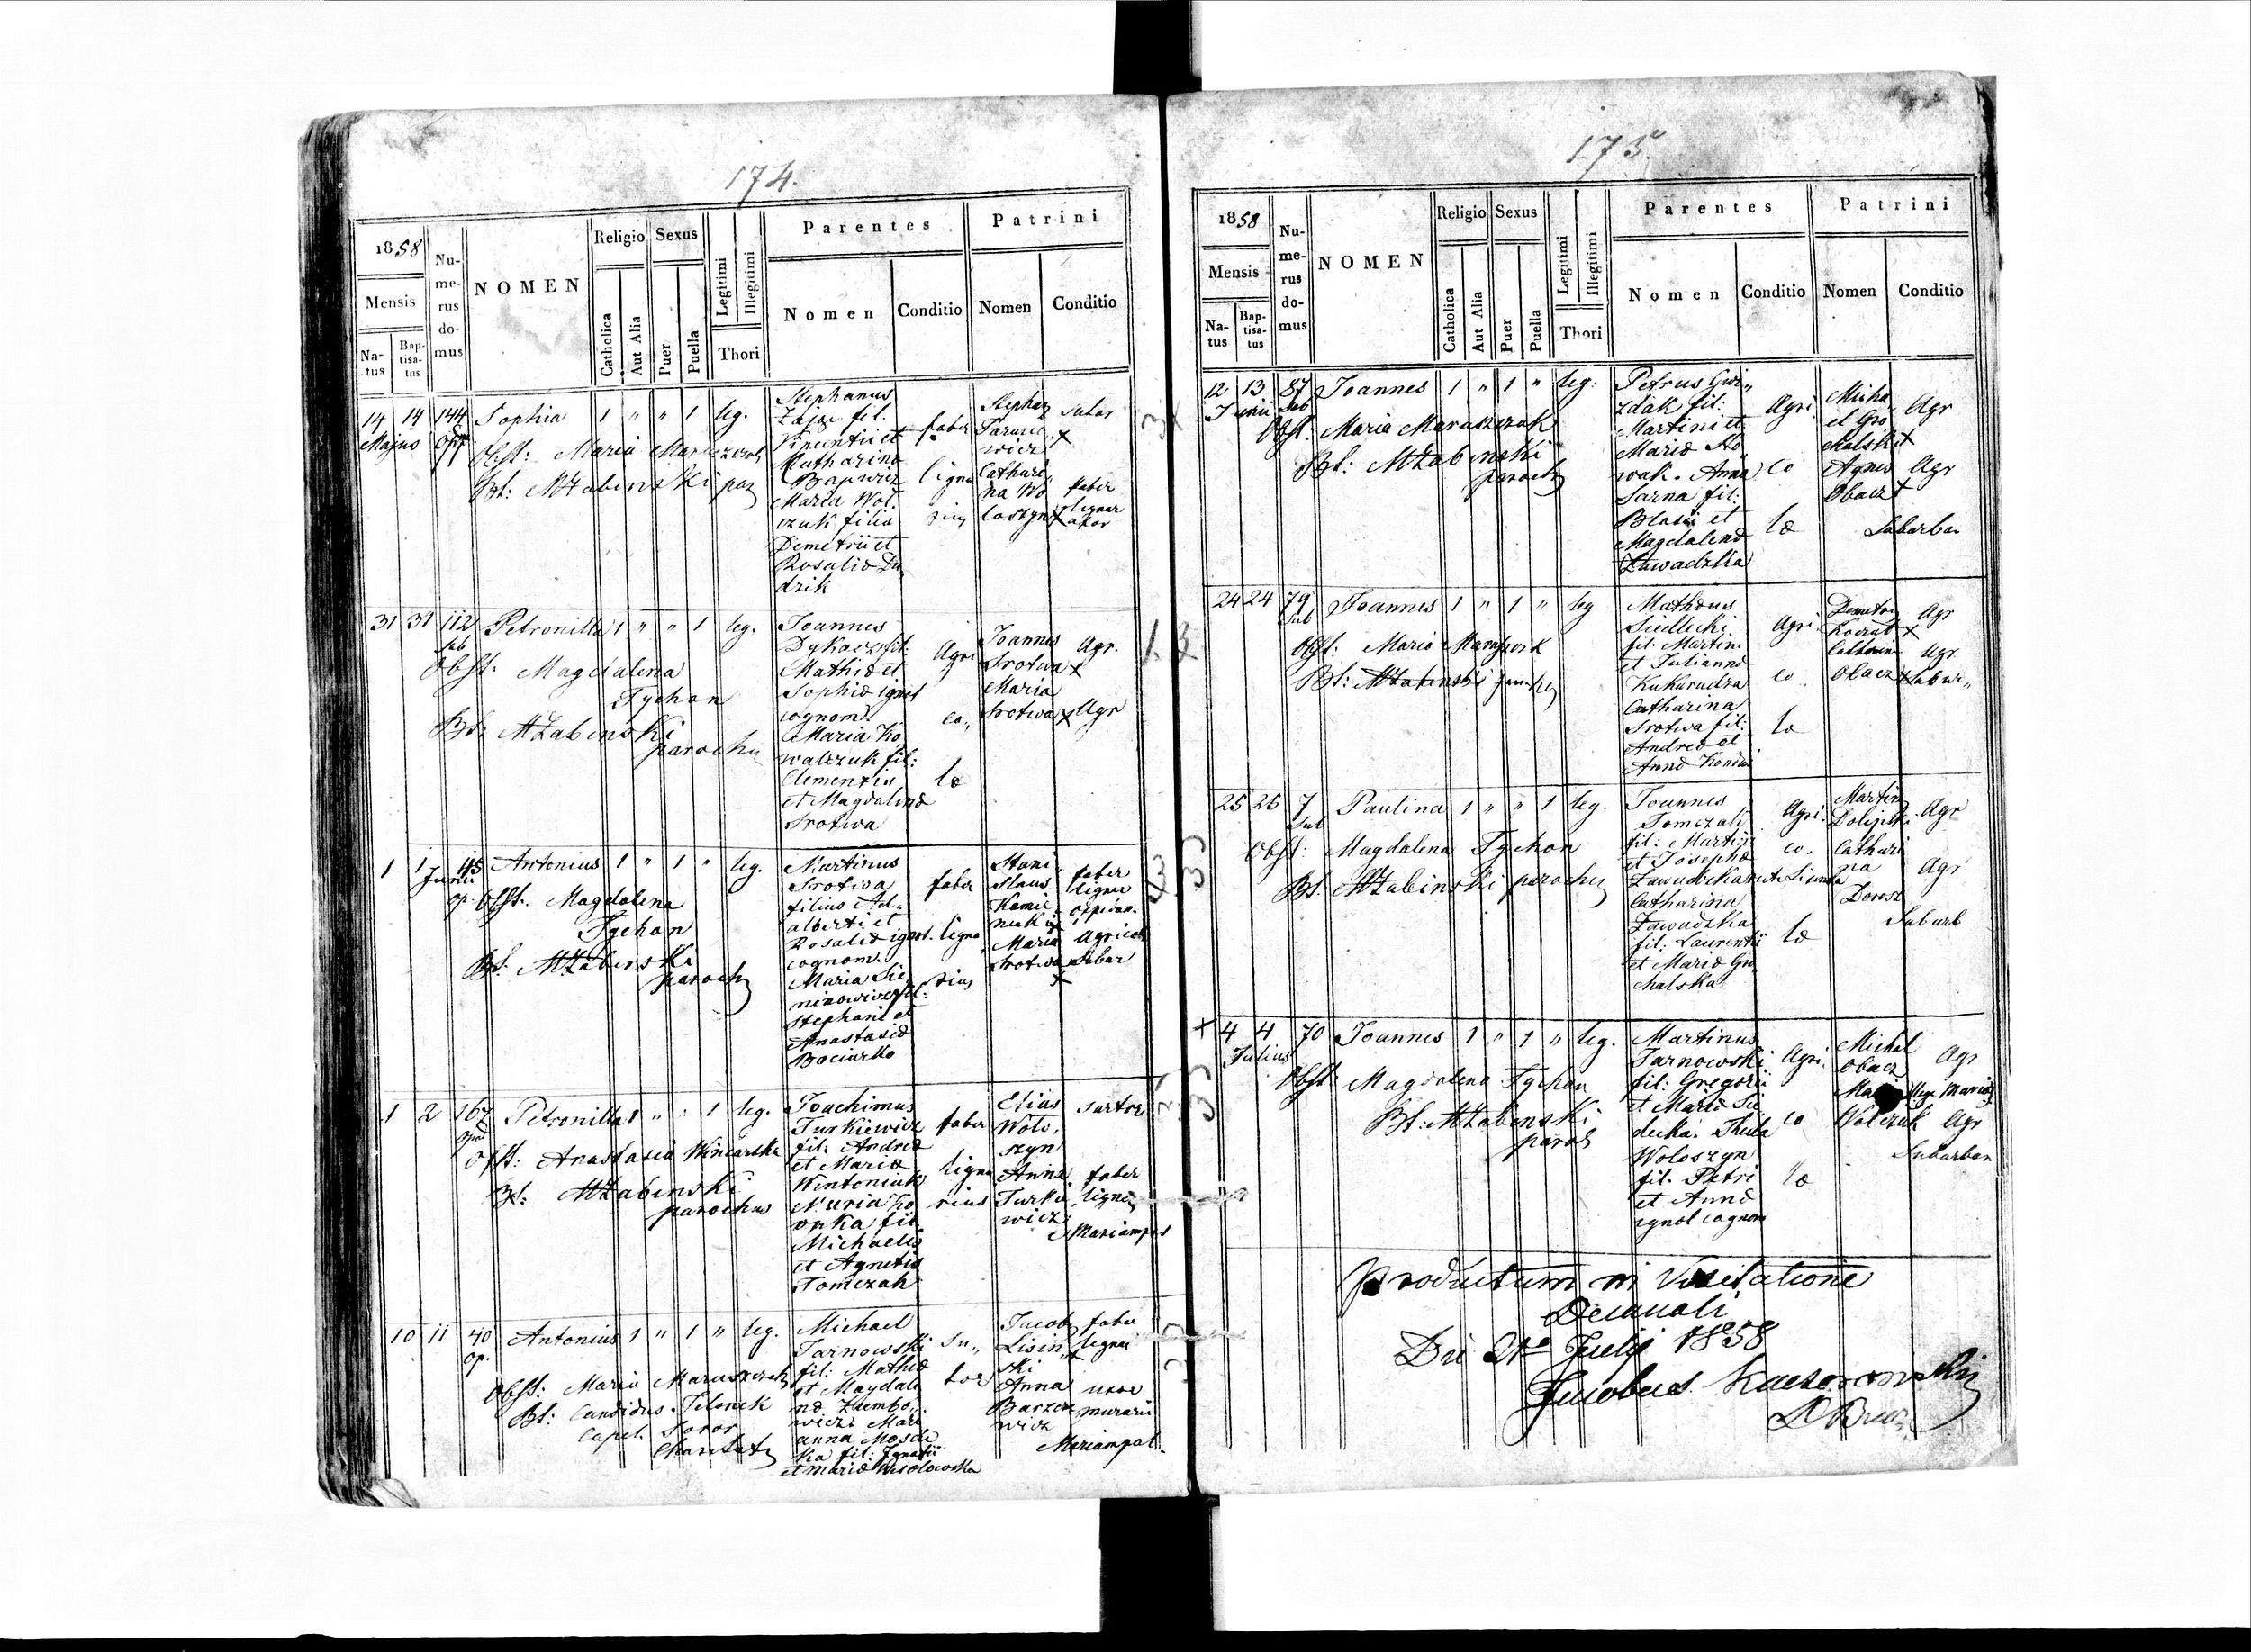 174.
1858
Mensis
Natus
Baptisatus
Numerus domus
NOMEN
Religio
Catholica
Aut Alia
Sexus
Puer
Puella
Legitimi
Illegitimi
Thori
Parentes
Nomen
Conditio
Patrini
Nomen
Conditio
14 14 144 Sophia 1 " " 1 leg.
Majus Opp
Obst: Maria
Bt: MŻabinski
Stephanus
Zając fil.
Vincentii et
Catharina
Maria Wol
czuk filia
Demetrii et
Rosaliæ Du
dzik
faber
ligna
rius
Stephan
Tarnie
wicz
Cathari
na Wo
loszyn
sutor
faber
lignar
31 31 112 Petronilla 1 " " 1 leg.
Sub
Obst: Magdalena
Tychan
Bt: MŻabinski
parochu
Joannes
Dykacz fil:
Mathiæ et
Sophiæ ignot
cognom.
Maria Ko
walczuk fil:
Clementis
et Magdalenæ
Srotwa
Agri
co
læ
Joannes
Srotwa
Maria
Srotwa
Agr.
Agr
1 1 45 Antonius 1 " 1 " leg.
Junii
op. Obst. Magdalena
Tychan
Bt: MŻabinski
paroch
Martinus
Srotwa
filius Ad
alberti et
Rosaliæ ignot.
cognom.
Maria Sie
ninowicz fil:
Stephani et
Anastasiæ
Bociurko
faber
ligna
rius
Stani
slaus
Kamie
niecki
Maria
Srotwa
faber
lignar
oppidan.
Agricol
Subur
1 2 167 Petronilla 1 " " 1 leg.
Obst: Anastasia Winiarska
Bt: MŻabinski
parochus
Joachimus
Turkiewicz
fil: Andreæ
et Mariæ
Wintoniuk
Maria Ko
opka fil:
Michaelis
et Agnetis
Tomczak
faber
ligna
rius
Elias
Wolo
szyn
Anna
Turkie
wicz
sartor
faber
ligna
Mariampol
10 11 40 Antonius 1 " 1 " leg.
op.
Obst: Maria Maruszczak
Bt: Candidus
Capel. Soror
Charitatis
Michael
Tarnowski
fil: Mathiæ
et Magdale
næ Ziembo
wicz. Mari
anna
ka fil: Ignatii
et Mariæ Wesolowska
Su
tor
Jacob
Lisin
ski
Anna
wicz
faber
lignar
uxor
murarii
Mariampol.
175.
1858
Mensis
Natus
Baptisatus
Numerus domus
NOMEN
Religio
Catholica
Aut Alia
Sexus
Puer
Puella
Legitimi
Illegitimi
Thori
Parentes
Nomen
Conditio
Patrini
Nomen
Conditio
12 13 87 Joannes 1 " 1 " leg.
Junii Sub
Obst: Maria Maruszczak
Bt: MŻabinski
paroch
Petrus Gwi
zdak fil:
Martini et
Mariæ No
wak. Anna
Sarna fil:
Blasii et
Magdalenæ
Zawadzka
Agri
co
læ
Micha
el Gro
chalski
Agnes
Obacz
Agr
Agr
Suburban
24 24 79 Joannes 1 " 1 " leg
Sub
Obst: Maria
Bt: MŻabinski
Mathæus
Siedlecki
fil: Martini
et Juliannæ
Kukurudza
Catharina
Srotwa fil:
Andreæ et
Annæ
Agri
co
læ
Catharina
Obacz
Agr
Agr
25 25 7 Paulina 1 " " 1 leg.
Sub
Obst: Magdalena Tychan
Bt: MŻabinski parochus
Joannes
Tomczak
fil: Martini
et Josephæ
Zawadzka
Catharina
Zawadzka
fil: Laurentii
et Mariæ Gro
chalska
Agri
co
læ
Martin
Cathari
na
Dorosz
Agr
Agr
Suburb
4 4 70 Joannes 1 " 1 " leg.
Julius
Obst: Magdalena Tychan
Bt: MŻabinski
paroch
Martinus
Tarnowski
fil: Gregorii
et Mariæ Sie
decka. Thecla
Woloszyn
fil: Petri
et Annæ
ignot cognom
Agri
co
læ
Michal
Obacz
Wolczuk
Agr
Agr
Suburban
Productum in Visitatione
Decanali
Die 21a Julij 1858
Jacobus